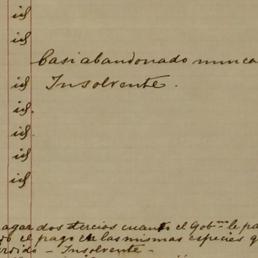 id
id
Casi abandonado nunca
id Insolvente.
id.
id
id
id
agar dos tercios cuando el Gob.no le pa
o el pago en las mismas especies q
rdido - Insolvente -